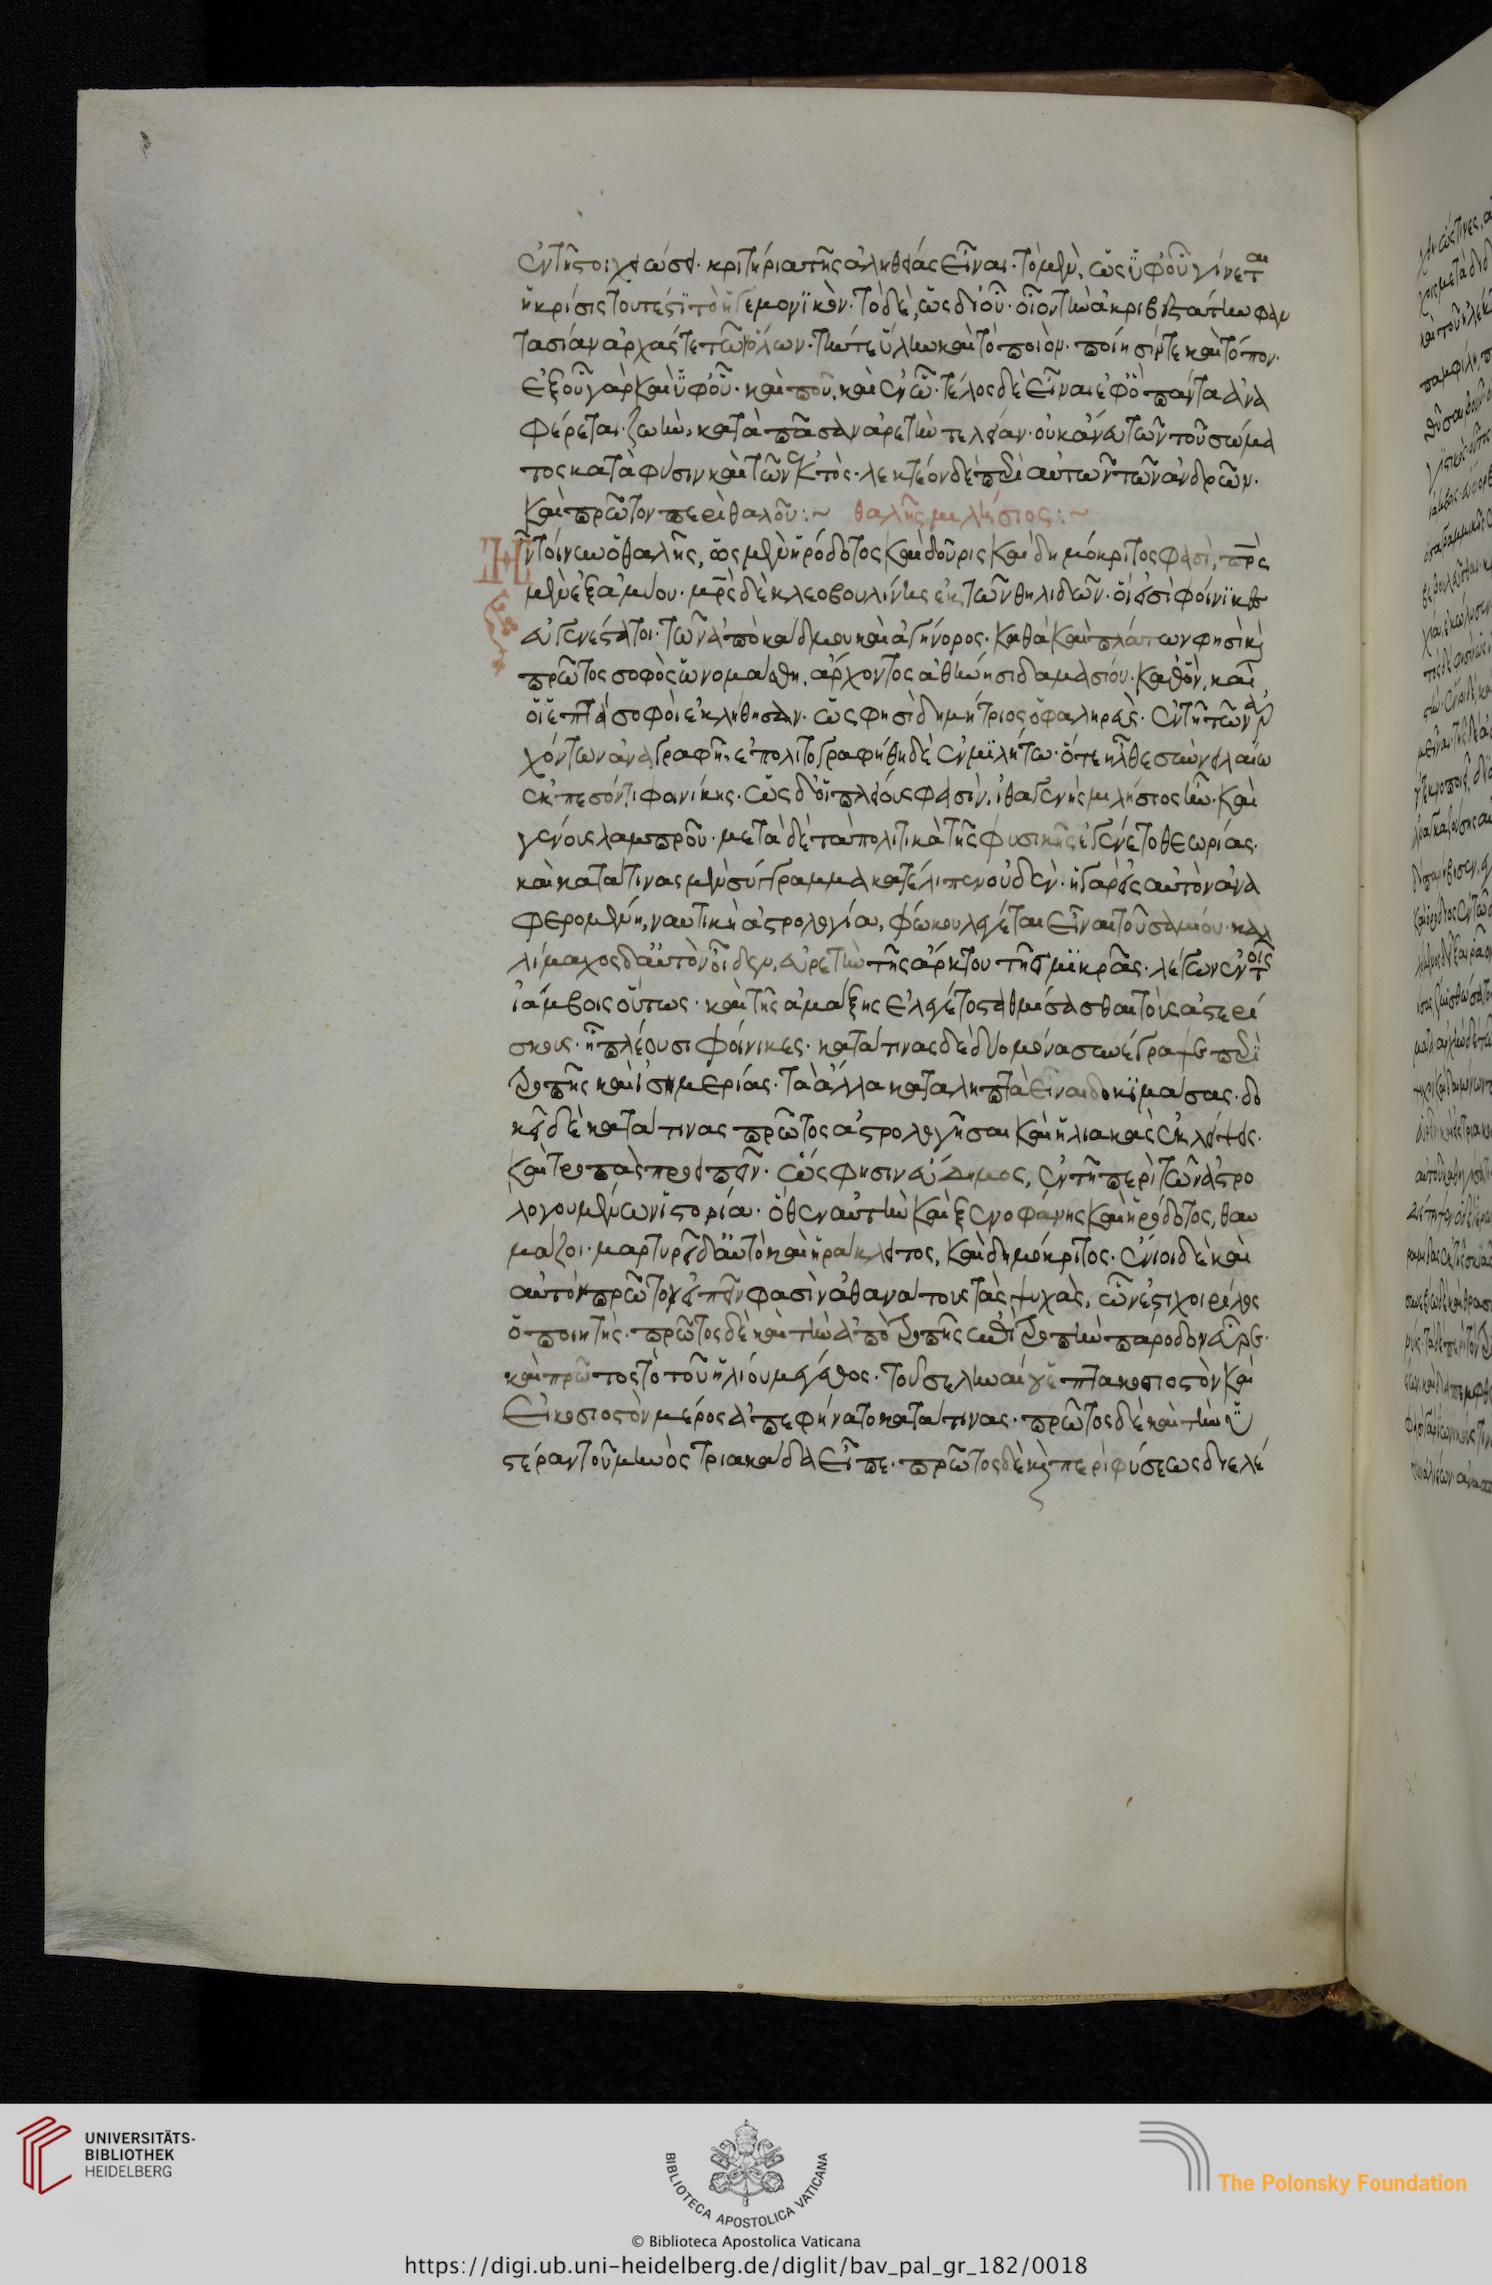 ἐν τῇ στοιχειώσει· κριτήρια τῆς ἀληθείας εἶναι· τὸ μὲν, ὡς ὑφ' οὗ γίνεται
ἡ κρίσις τουτέστι τὸ ἡγεμονϊκὸν· τὸ δὲ, ὡς δι' οὗ· οἷον τὴν ἀκριβεστάτην φαν
τασίαν ἀρχάς τε τῶν ὅλων· τήν τε ὕλην καὶ τὸ ποιὸν· ποίησίν τε καὶ τόπον·
ἐξ οὗ γὰρ καὶ ὑφ' οὗ· καὶ ποῦ, καὶ ἐν ᾧ· τέλος δὲ εἶναι ἐφ' ὃ πάντα ἀνα
φέρεται· ζωὴν, κατὰ πᾶσαν ἀρετὴν τελείαν· οὐκ ἄνευ τῶν τοῦ σώμα
τος κατὰ φύσιν καὶ τῶν ἐκτὸς· λεκτέον δὲ περὶ αὐτῶν τῶν ἀνδρῶν·
καὶ πρῶτον περὶ θαλοῦ:~ θαλῆς μιλήσιος:~
Ἦν τοίνυν ὁ θαλῆς, ὡς μὲν ἡρόδοτος καὶ δοῦρις καὶ δημόκριτος φασὶ, πρς
μὲν ἐξαμύου· μρς δὲ κλεοβουλίνης ἐκ τῶν θηλιδῶν· οἵ εἰσὶ φοίνϊκες
εὐγενέστατοι· τῶν ἀπὸ κάδμου καὶ ἀγήνορος· καθὰ καὶ πλάτων φησὶ κ(αὶ)
πρῶτος σοφὸς ὠνομάσθη, ἄρχοντος ἀθήνησι δαμασίου· καθ' ὃν, καὶ
οἱ ἑπτά σοφοὶ ἐκλήθησαν· ὥς φησὶ δημήτριος ὁ φαληρεὺς· ἐν τῇ τῶν ἀρ
χόντων ἀναγραφῇ, ἐπολιτογραφήθη δὲ ἐν μϊλήτω· ὅτε ἦλθε σὺν νειλαίω
ἐκπεσόντι φοινίκης· ὡς δ' οἱ πλείους φασὶν, ἰθαγενὴς μιλήσιος ἦν· καὶ
γένους λαμπροῦ· μετὰ δὲ τὰ πολιτικὰ τῆς φυσικῆς ἐγένετο θεωρίας·
καὶ κατά τινας μὲν σύγγραμμα κατέλιπεν οὐδὲν· ἡ γὰρ εἰς αὐτὸν ἀνα
φερομένη, ναυτικὴ ἀστρολογία, φώκου λέγεται εἶναι τοῦ σαμίου· καλ
λίμαχος δ' αὐτὸν οἶδεν, εὑρετὴν τῆς ἄρκτου τῆς μϊκρᾶς· λέγων ἐν τοῖς
ἰάμβοις οὕτως· καὶ τῆς ἁμάξης ἐλέγετο σταθμήσασθαι τοὺς ἀστερί
σκους· ᾗ πλέουσι φοίνικες· κατά τινας δὲ δύο μόνα συνέγραψε περὶ
τροπῆς καὶ ἰσημερίας· τὰ ἄλλα καταληπτὰ εἶναι δοκϊμάσας· δο
κεῖ δὲ κατά τινας πρῶτος ἀστρολογῆσαι καὶ ἡλιακὰς ἐκλείψεις·
καὶ τροπὰς προειπεῖν· ὥς φησιν εὔδημος, ἐν τῇ περὶ τῶν ἀστρο
λογουμένων ἱστορία· ὅθεν αὐτὴν καὶ ξενοφάνης καὶ ἡρόδοτος, θαυ
μάζοι· μαρτυρεῖ δ' αὐτὸ καὶ ἡράκλειτος, καὶ δημόκριτος· ἔνιοι δὲ καὶ
αὐτὸν πρῶτον εἰπεῖν φασὶν ἀθανάτους τὰς ψυχὰς, ὧν ἐστι χοιρίλος
ὁ ποιητὴς· πρῶτος δὲ καὶ τὴν ἀπὸ τροπῆς ἐπὶ τροπὴν πάροδον εὗρε·
καὶ πρῶτος τὸ τοῦ ἡλίου μέγεθος· τοῦ σεληναίου ἑπτακοσιοστὸν καὶ
εἰκοσιοστὸν μέρος ἀπεφήνατο κατά τινας· πρῶτος δὲ καὶ τὴν ὑ
στέραν τοῦ μηνὸς τριακάδα εἶπε· πρῶτος δὲ κ(αὶ) περὶ φύσεως διελέ
UNIVERSITÄTS-
BIBLIOTHEK
HEIDELBERG
BIBLIOTECA APOSTOLICA VATICANA
The Polonsky Foundation
© Biblioteca Apostolica Vaticana
https://digi.ub.uni-heidelberg.de/diglit/bav_pal_gr_182/0018